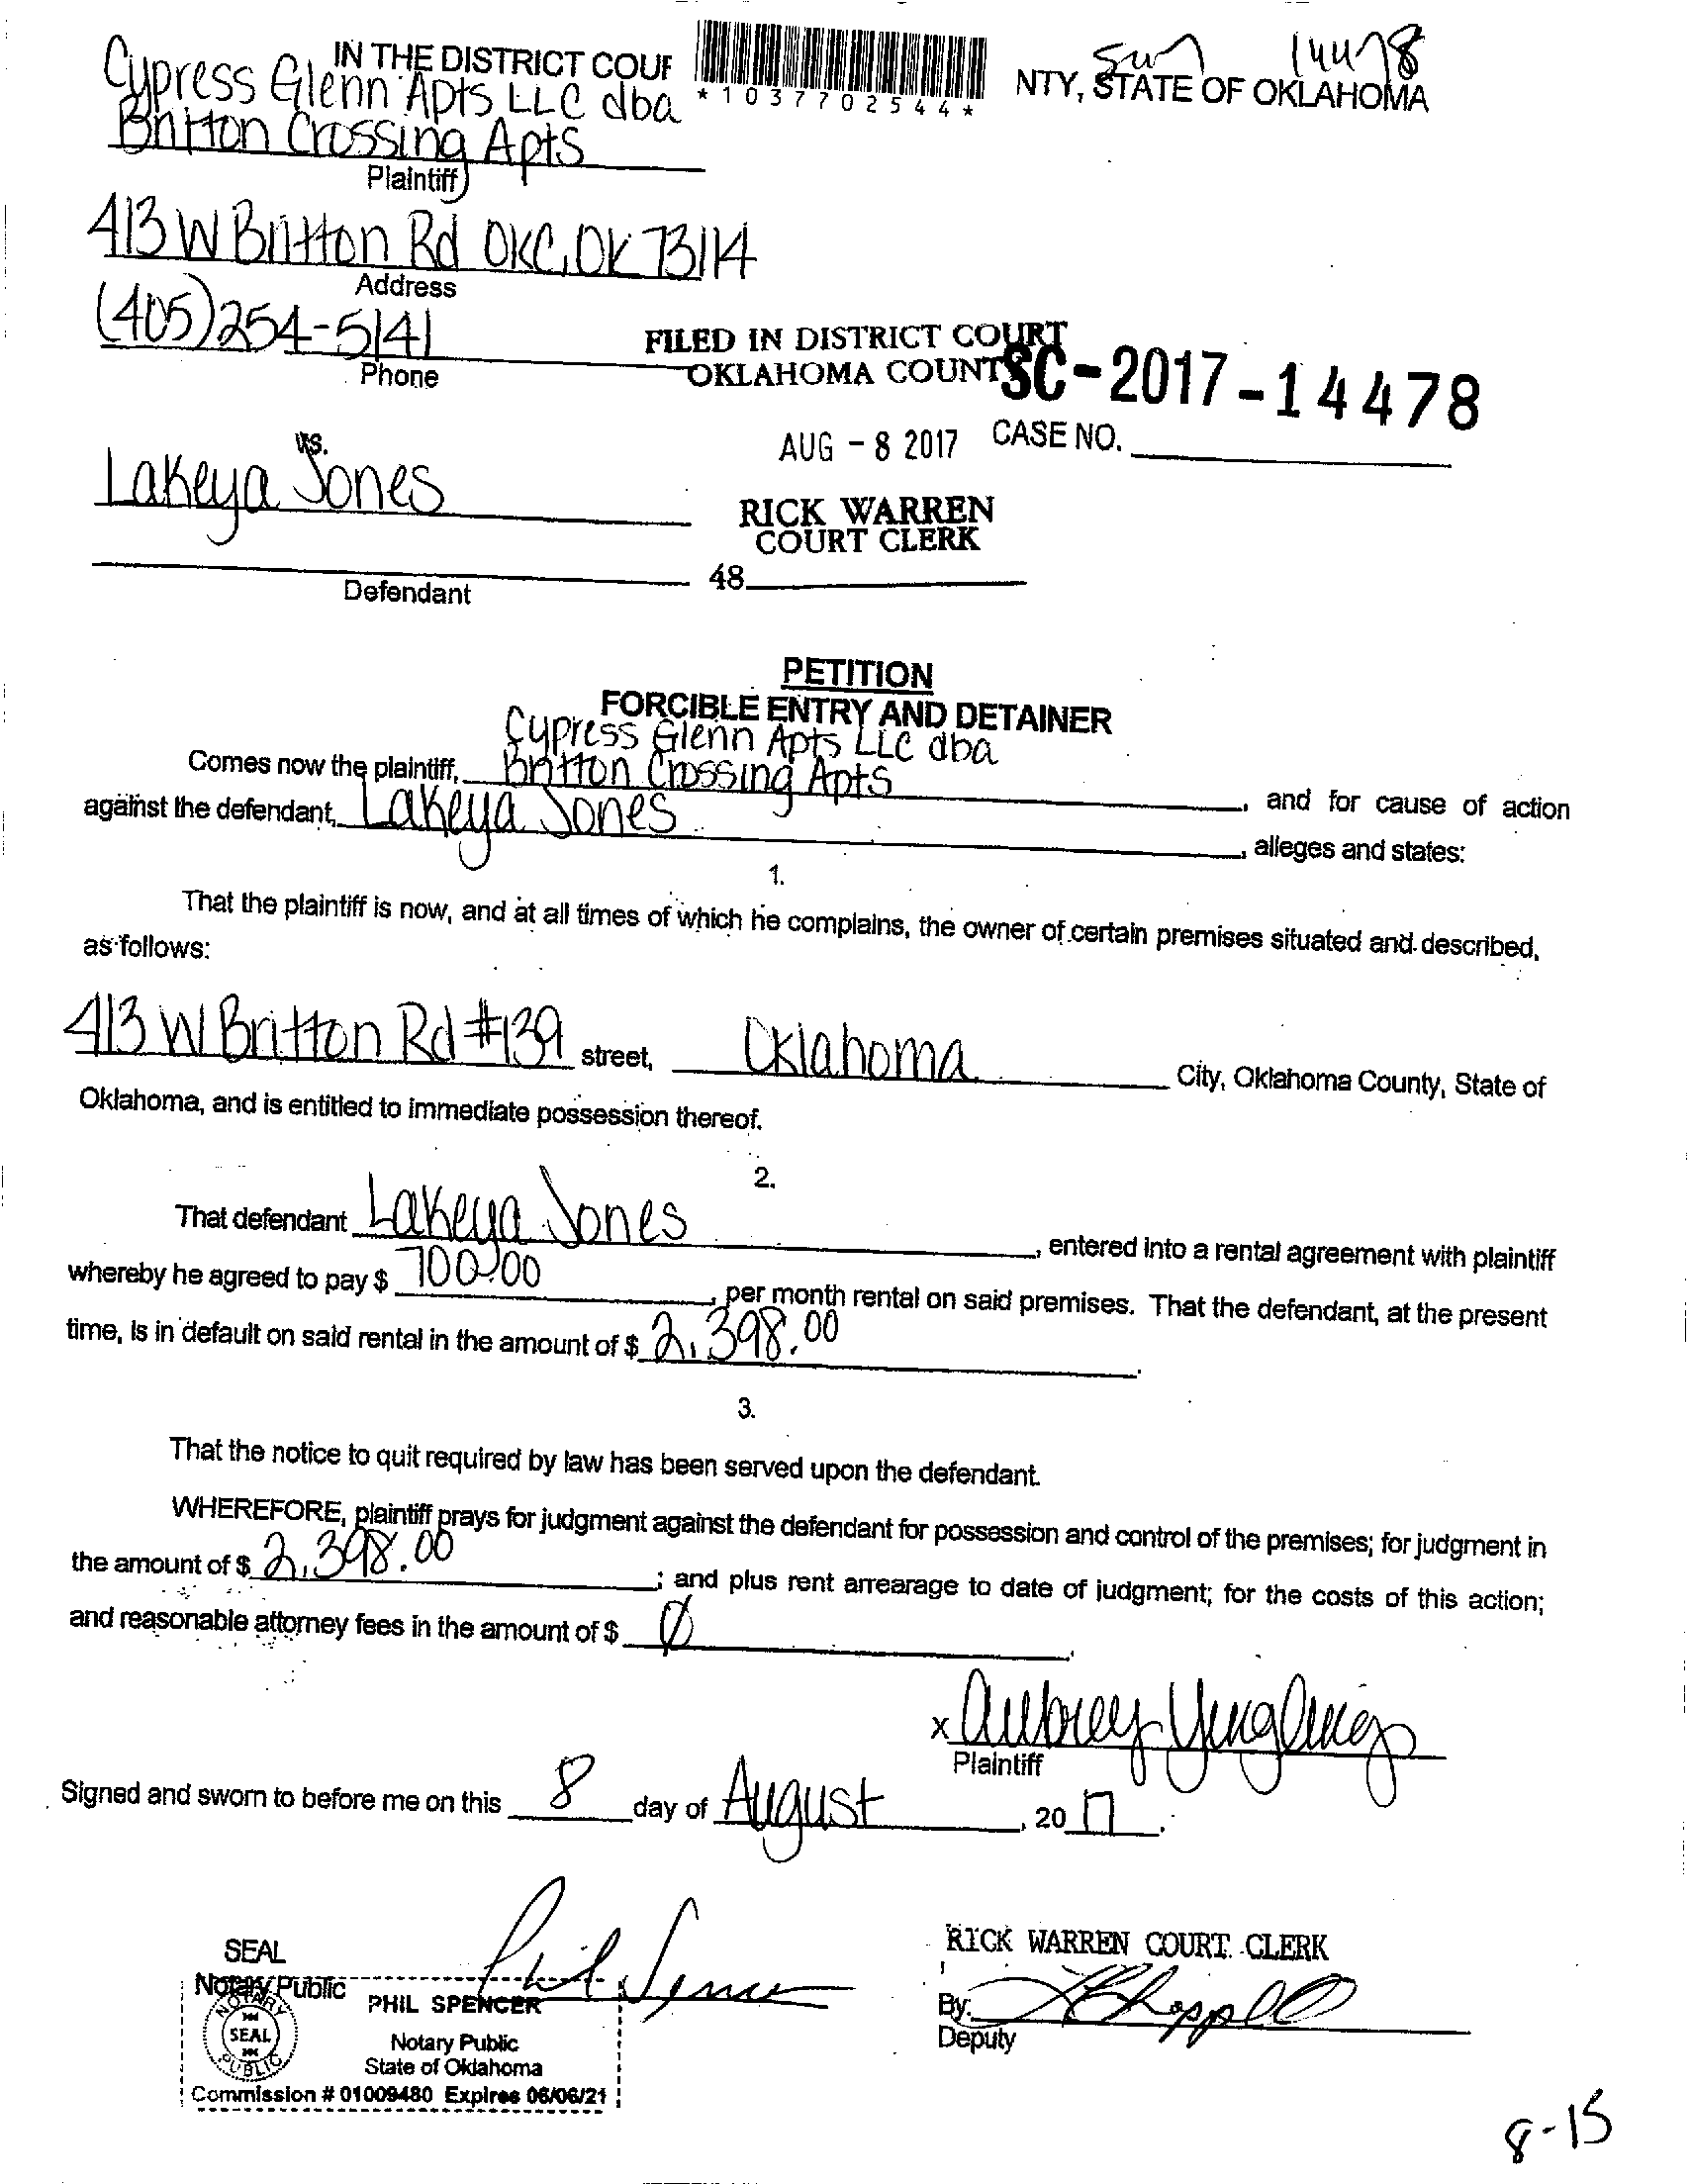 Sum 14478
IN THE DISTRICT COUR NTY, STATE OF OKLAHOMA
*1037702544*
Cypress Glenn Apts LLC dba
Britton Crossing Apts
Plaintiff
413 W Britton Rd OKC, OK 73114
Address
(405) 254-5141
Phone
FILED IN DISTRICT COURT
OKLAHOMA COUNTY
SC-2017-14478
AUG - 8 2017
CASE NO.
vs.
Lakeya Jones
RICK WARREN
COURT CLERK
48
Defendant
PETITION
FORCIBLE ENTRY AND DETAINER
Cypress Glenn Apts LLC dba
Comes now the plaintiff, Britton Crossing Apts , and for cause of action
against the defendant, Lakeya Jones , alleges and states:
1.
That the plaintiff is now, and at all times of which he complains, the owner of certain premises situated and described,
as follows:
413 W Britton Rd #139 street, Oklahoma City, Oklahoma County, State of
Oklahoma, and is entitled to immediate possession thereof.
2.
That defendant Lakeya Jones , entered into a rental agreement with plaintiff
whereby he agreed to pay $ 700.00 , per month rental on said premises. That the defendant, at the present
time, is in default on said rental in the amount of $ 2,398.00 .
3.
That the notice to quit required by law has been served upon the defendant.
WHEREFORE, plaintiff prays for judgment against the defendant for possession and control of the premises; for judgment in
the amount of $ 2,398.00 ; and plus rent arrearage to date of judgment; for the costs of this action;
and reasonable attorney fees in the amount of $ Ø .
x Aubrey Yuengling
Plaintiff
Signed and sworn to before me on this 8 day of August , 20 17 .
Phil Spencer
SEAL
Notary Public
NOTARY
SEAL
PUBLIC
PHIL SPENCER
Notary Public
State of Oklahoma
Commission # 01009480 Expires 06/06/21
RICK WARREN COURT CLERK
By:
Deputy
8-15